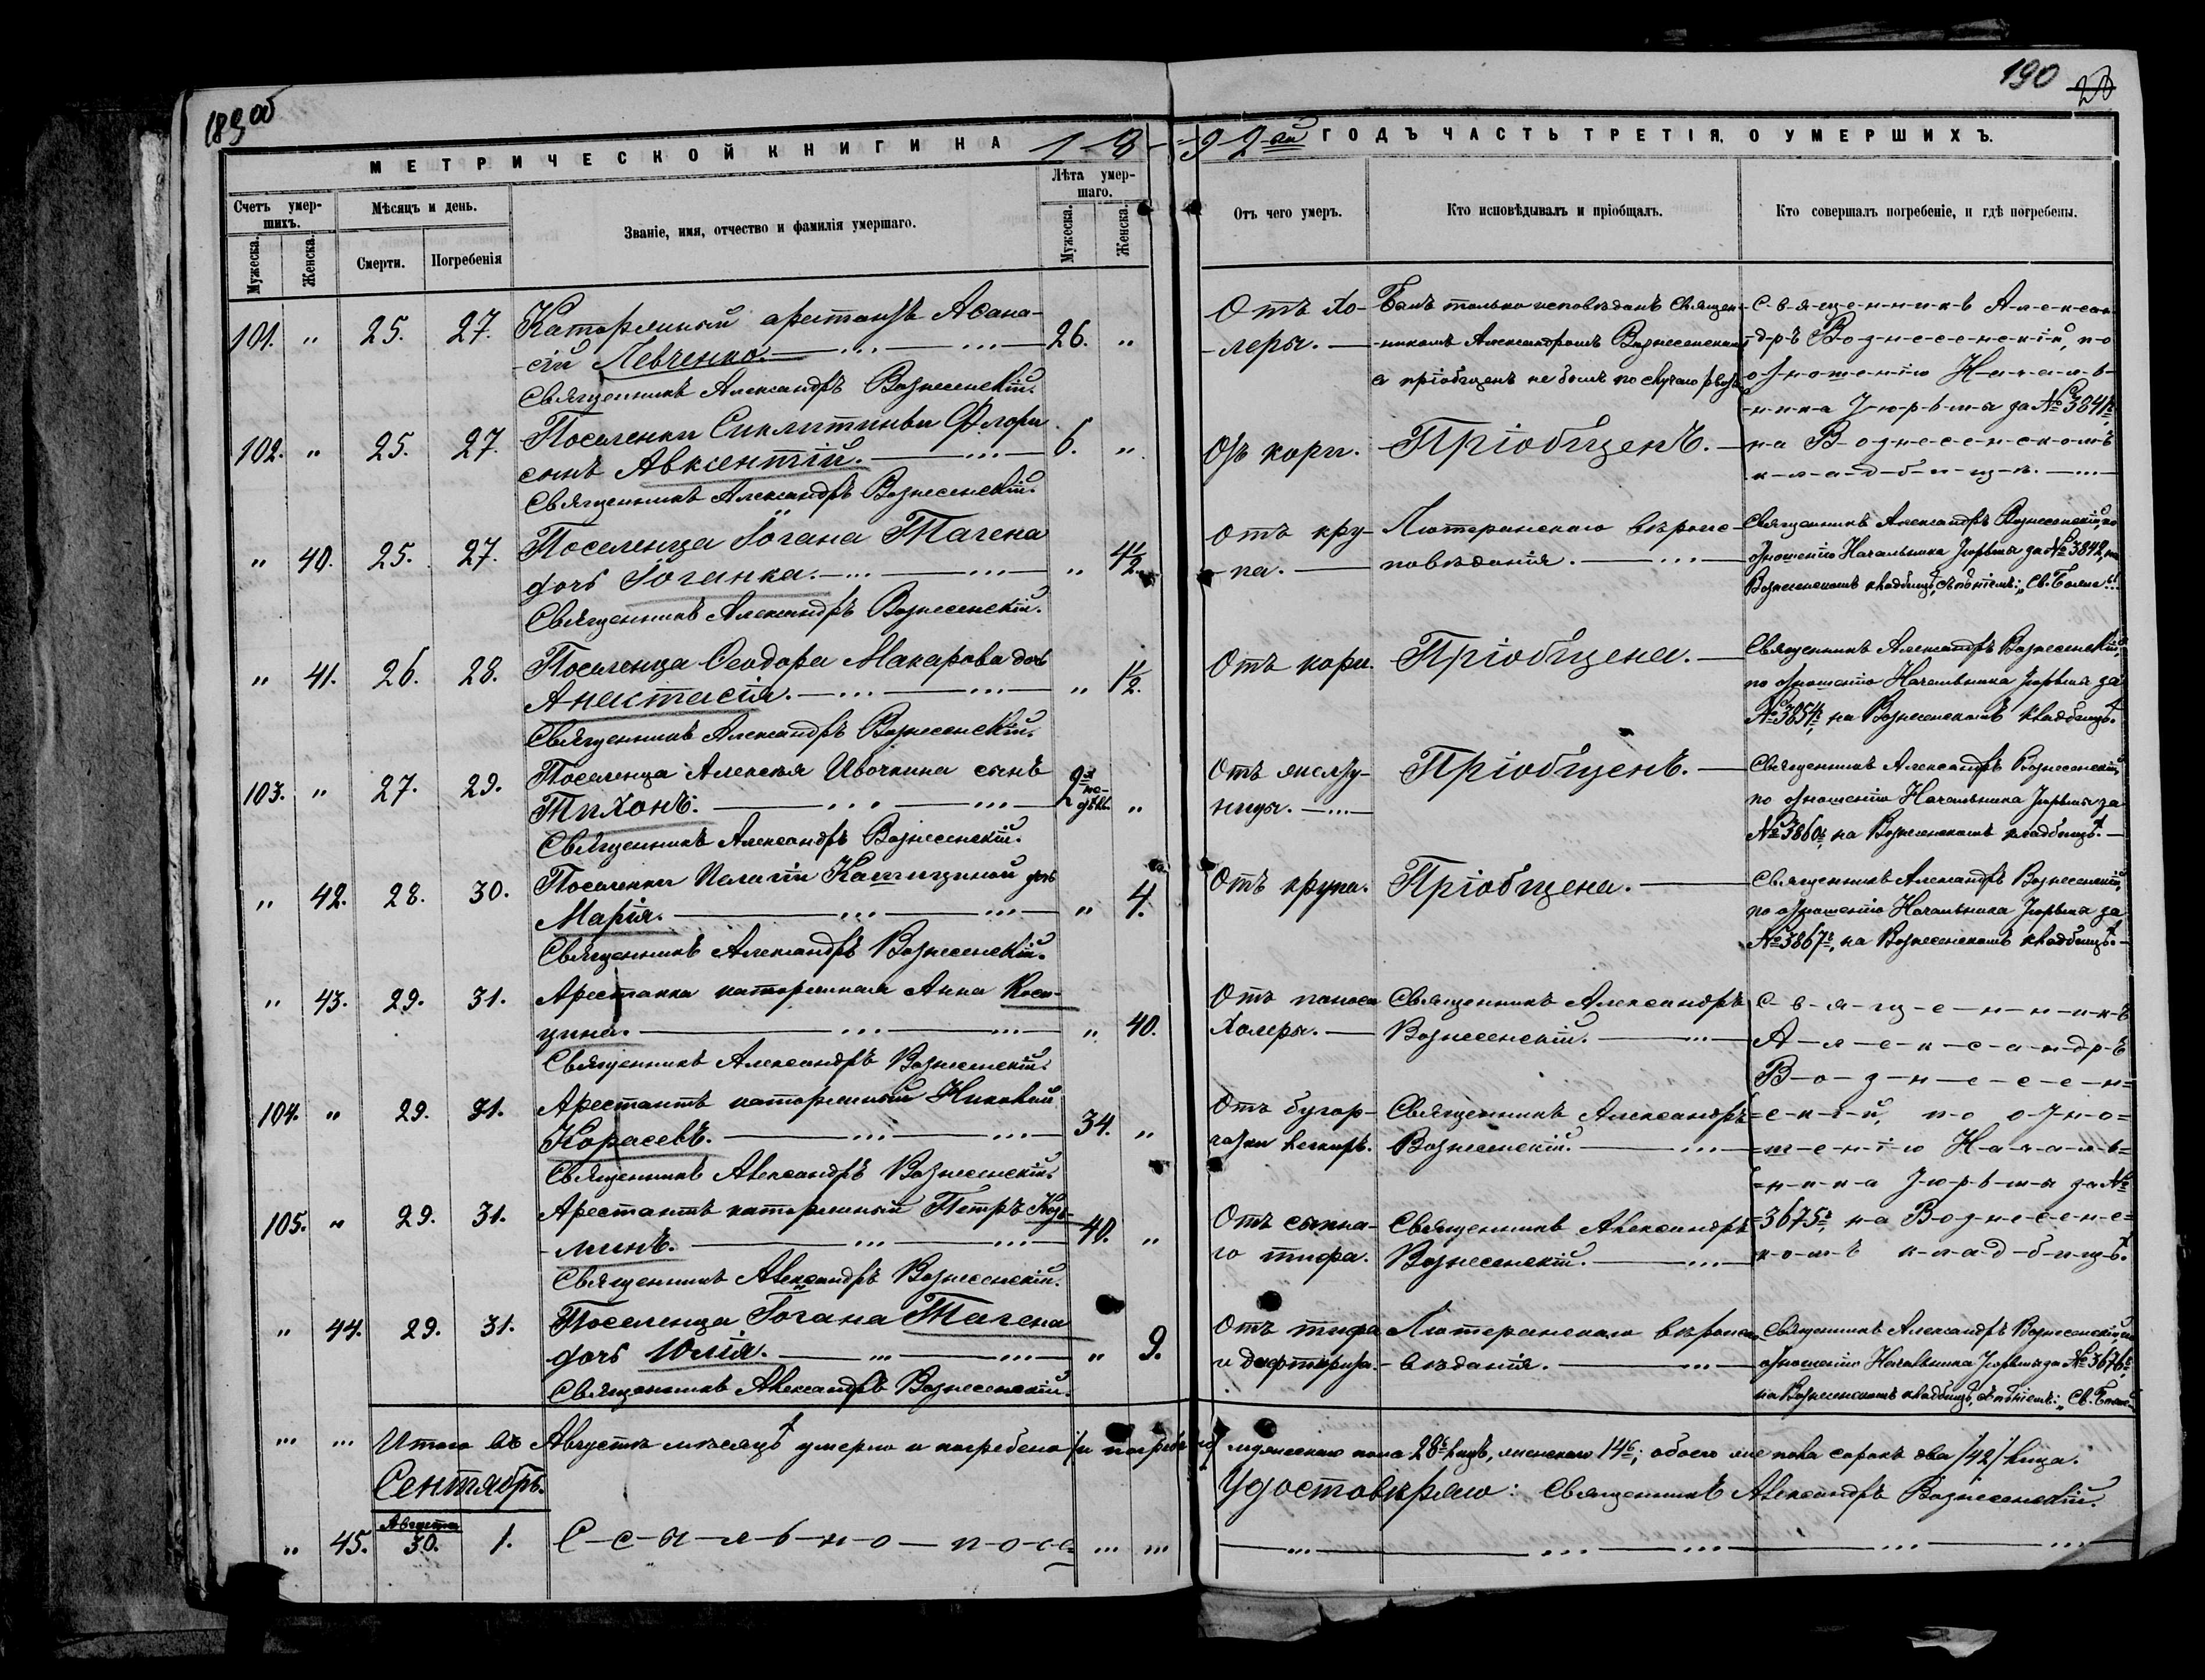 189 об
190
20
МЕТРИЧЕСКОЙ КНИГИ НА 1892-ой ГОДЪ ЧАСТЬ ТРЕТІЯ, О УМЕРШИХЪ.
Счетъ умершихъ.
Мужеска.
Женска.
Мѣсяцъ и день.
Смерти.
Погребенія
Званіе, имя, отчество и фамилія умершаго.
Лѣта умер-
шаго.
Мужеска.
Женска.
Отъ чего умеръ.
Кто исповѣдывалъ и пріобщалъ.
Кто совершалъ погребеніе, и гдѣ погребены.
101. " 25. 27. Каторжный арестантъ Аѳана-
-сій Левченко. 26. "
Священникъ Александръ Вознесенскій.
Отъ хо-
-леры.
Былъ только исповѣданъ Священ-
-никомъ Александромъ Вознесенскимъ,
а пріобщенъ не былъ по случаю рвоты
Священникъ Алексан-
-дръ Вознесенскій, по
отношенію Началь-
-ника Тюрьмы за № 3841,
на Вознесенскомъ
кладбищѣ.
102. " 25. 27. Поселенки Сиклитиньи Флори
сынъ Авксентій. 6. "
Священникъ Александръ Вознесенскій.
Отъ кори.
Пріобщенъ.
" 40. 25. 27. Поселенца Іогана Тагена
дочь Іоганка. " 4½.
Священникъ Александръ Вознесенскій.
Отъ кру-
-па.
Лютеранскаго вѣроис-
повѣданія.
Священникъ Александръ Вознесенскій, по
отношенію Начальника Тюрьмы за № 3842, на
Вознесенскомъ кладбищѣ, съ пѣніемъ: „Св. Боже"!..
" 41. 26. 28. Поселенца Ѳеодора Макарова дочь
Анастасія. " 1½.
Священникъ Александръ Вознесенскій.
Отъ кори.
Пріобщена.
Священникъ Александръ Вознесенскій,
по отношенію Начальника Тюрьмы за
№ 3854, на Вознесенскомъ кладбищѣ.
103. " 27. 29. Поселенца Алексѣя Ивочкина сынъ
Тихонъ. 9ть не-
дѣль. "
Священникъ Александръ Вознесенскій.
Отъ
-ницы.
Пріобщенъ.
Священникъ Александръ Вознесенскій,
по отношенію Начальника Тюрьмы за
№ 3860, на Вознесенскомъ кладбищѣ.
" 42. 28. 30. Поселенки Пелагіи Кашициной дочь
Марія. " 4.
Священникъ Александръ Вознесенскій.
Отъ крупа.
Пріобщена.
Священникъ Александръ Вознесенскій,
по отношенію Начальника Тюрьмы за
№ 3867, на Вознесенскомъ кладбищѣ.
" 43. 29. 31. Арестантка каторжная Анна Коси-
цина. " 40.
Священникъ Александръ Вознесенскій.
Отъ поноса
холеры.
Священникъ Александръ
Вознесенскій.
Священникъ
Александръ
Вознесен=
=скій, по отно=
=шенію Началь=
=ника Тюрьмы за №
=3675, на Вознесенс=
=комъ кладбищѣ.
104. " 29. 31. Арестантъ каторжный Николай
Карасевъ. 34. "
Священникъ Александръ Вознесенскій.
Отъ бугор-
чатки легкихъ.
Священникъ Александръ
Вознесенскій.
105. " 29. 31. Арестантъ каторжный Петръ Кузь-
-минъ. 40. "
Священникъ Александръ Вознесенскій.
Отъ сыпна-
го тифа.
Священникъ Александръ
Вознесенскій.
" 44. 29. 31. Поселенца Іогана Тагена
дочь Юлія. " 9.
Священникъ Александръ Вознесенскій.
Отъ тифа
и дифтерита.
Лютеранскаго вѣроиспо-
-вѣданія.
Священникъ Александръ Вознесенскій, по
отношенію Начальника Тюрьмы за № 3676,
на Вознесенскомъ кладбищѣ, съ пѣніемъ: „Св. Боже"
... ... Итого въ Августѣ мѣсяцѣ умерло и погребено /и погребено/ мужескаго пола 28ь лицъ, женскаго 14ь; обоего же пола сорокъ два /42/ лица.
Сентябрь.
Удостовѣряю: Священникъ Александръ Вознесенскій.
" 45. Августа
30. 1. Ссыльно-пос= ... ...